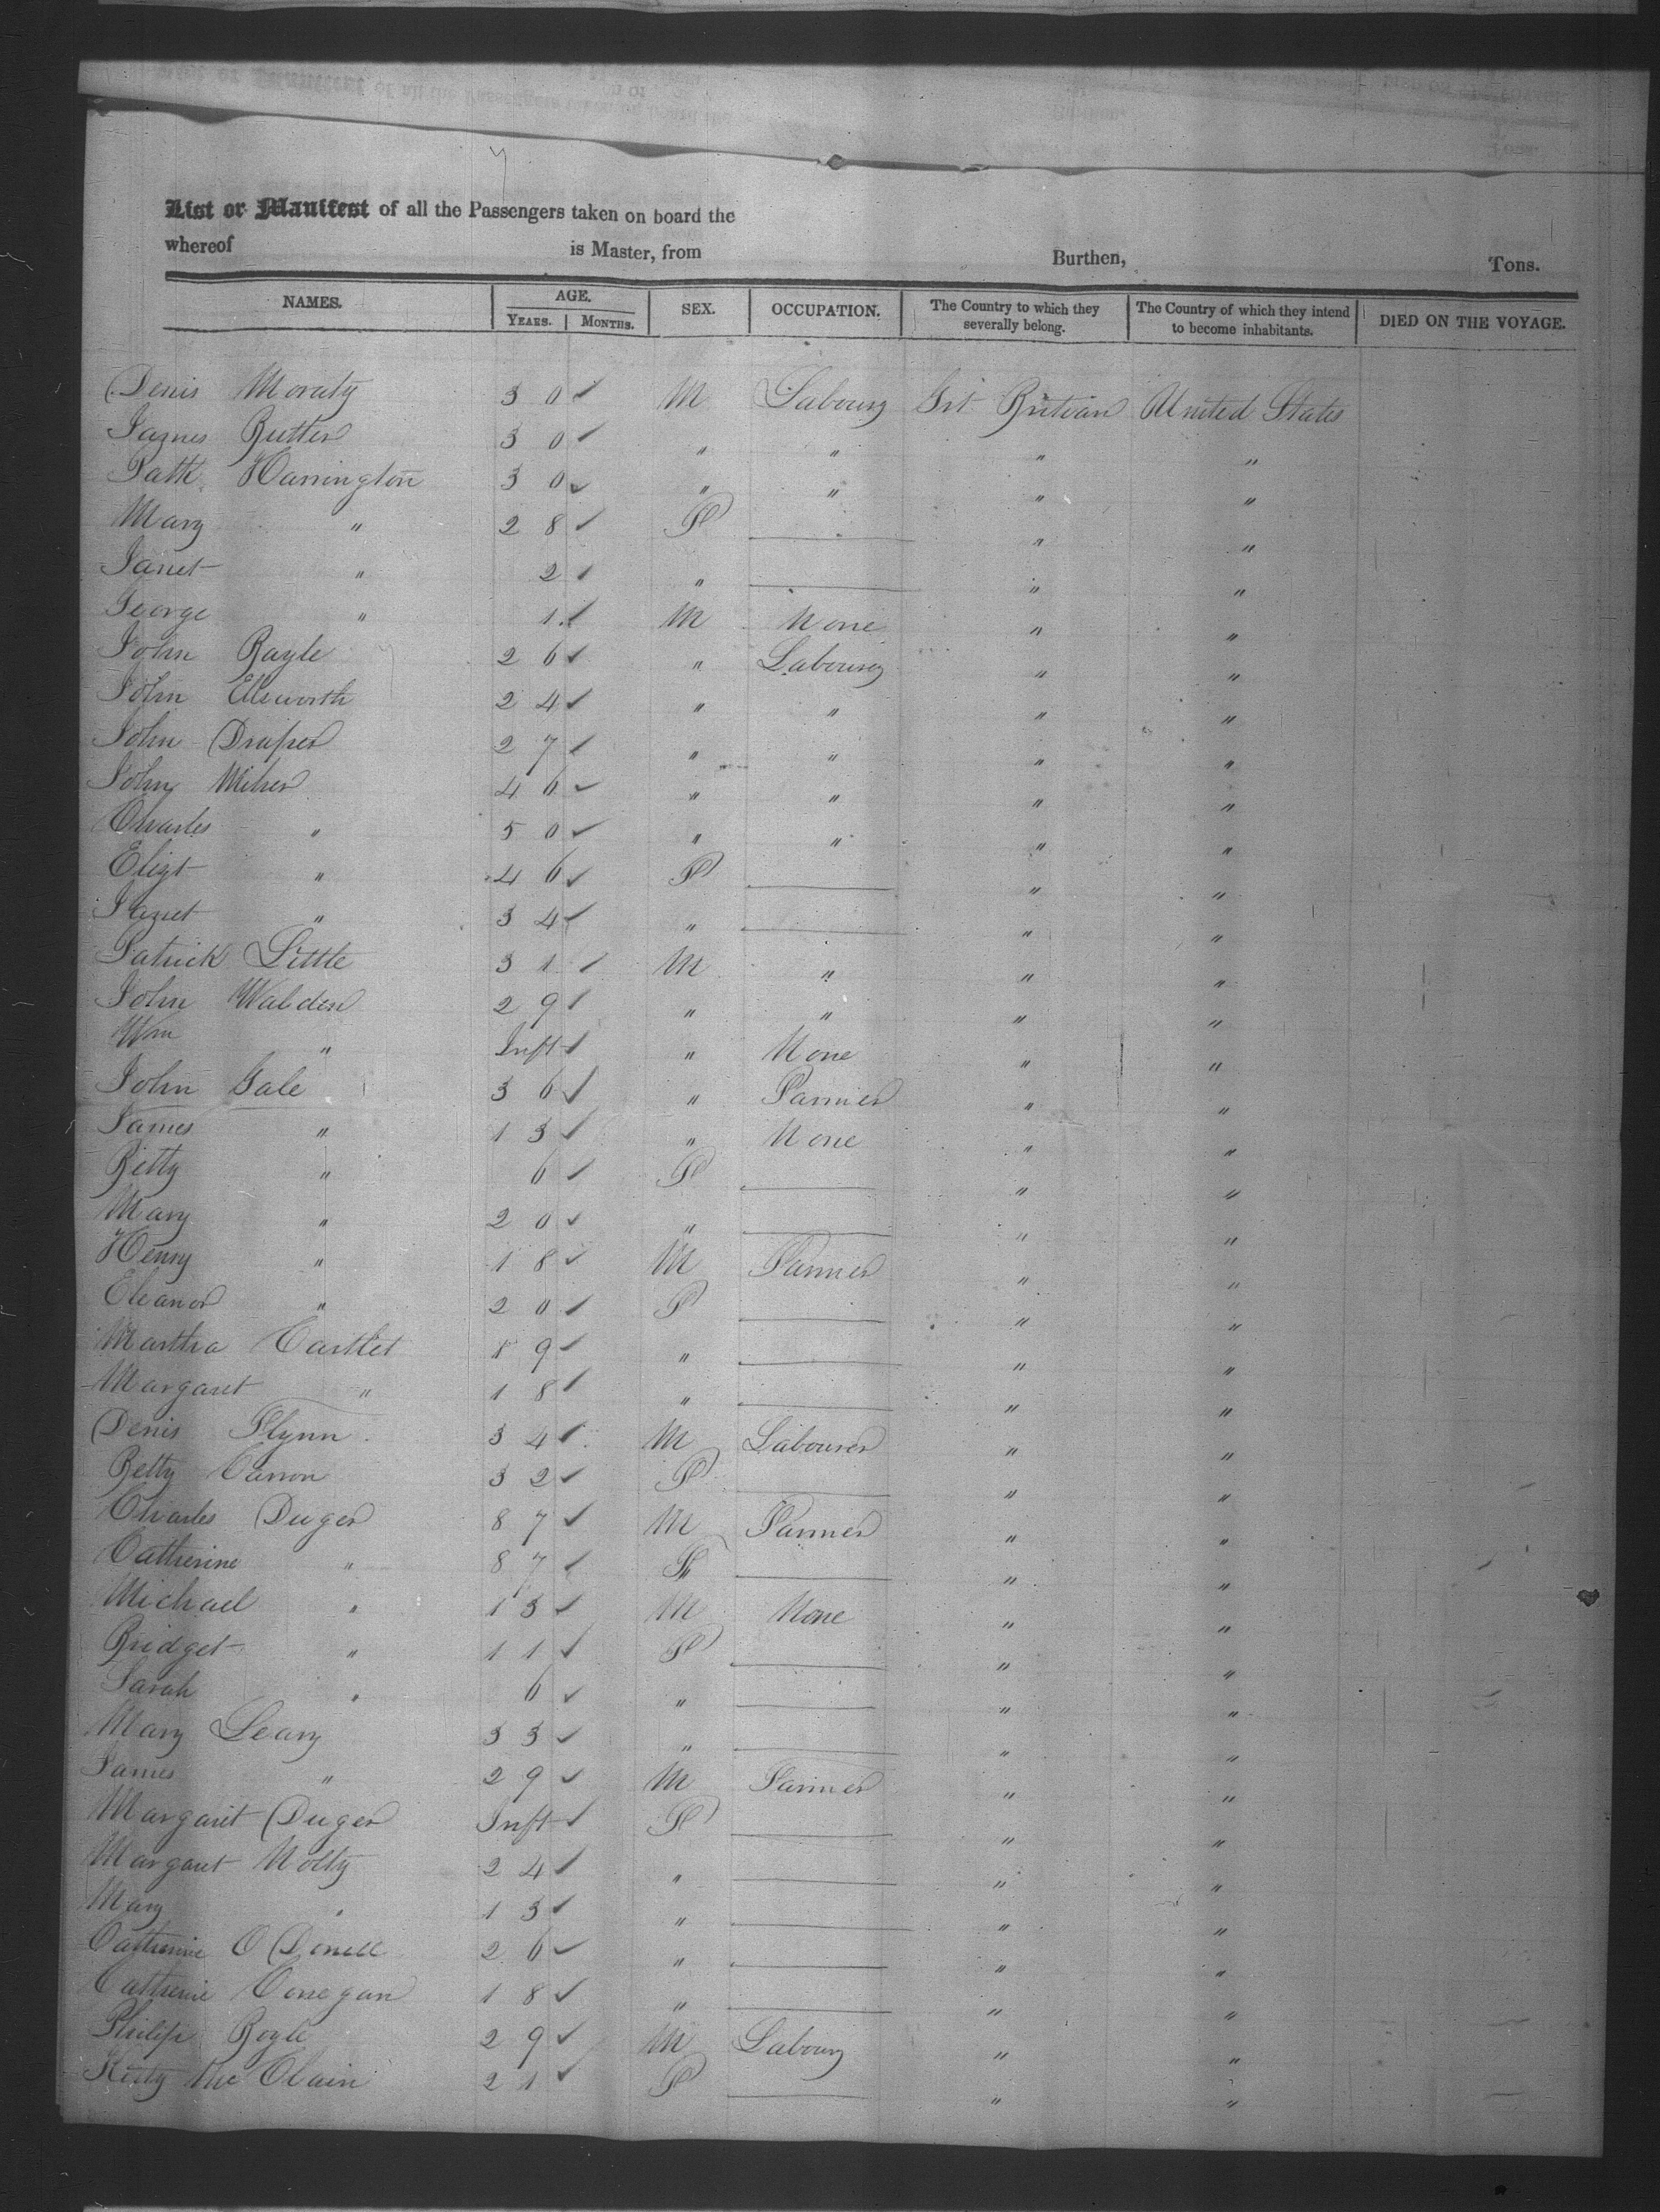 List or Manifest of all the Passengers taken on board the
whereof is Master, from Burthen, Tons.
NAMES. AGE. YEARS. MONTHS. SEX. OCCUPATION. The Country to which they severally belong. The Country of which they intend to become inhabitants. DIED ON THE VOYAGE.
Denis Moraty 30 M Labourer Grt Britian United States
James Butler 30 " " " "
Patk Harrington 30 " " " "
Mary " 28 F " "
Janet " 2 " " "
George " 1 M None " "
John Bayle 26 " Labourer " "
John Ellsworth 24 " " " "
John Draper 27 " " " "
John Milner 46 " " " "
Charles " 50 " " " "
Elizt " 46 F " "
Janet " 34 " " "
Patrick Little 31 M " " "
John Walden 29 " " " "
Wm " Inft " None " "
John Gale 36 " Farmer " "
James " 13 " None " "
Betty " 6 F " "
Mary " 20 " " "
Henry " 18 M Farmer " "
Eleanor " 20 F " "
Martha Cartlet 19 " " "
Margaret " 18 " " "
Denis Flynn 34 M Labourer " "
Betty Carron 32 F " "
Charles Duger 87 M Farmer " "
Catherine " 87 F " "
Michael " 13 M None " "
Bridget " 11 F " "
Sarah " 6 " " "
Mary Leary 33 " " "
James " 29 M Farmer " "
Margaret Duger Inft F " "
Margaret Nolty 24 " " "
Mary " 13 " " "
Catherine O Donell 26 " " "
Catherine Conegan 18 " " "
Philip Boyle 29 M Labourer " "
Kitty Mc Clain 21 F " "